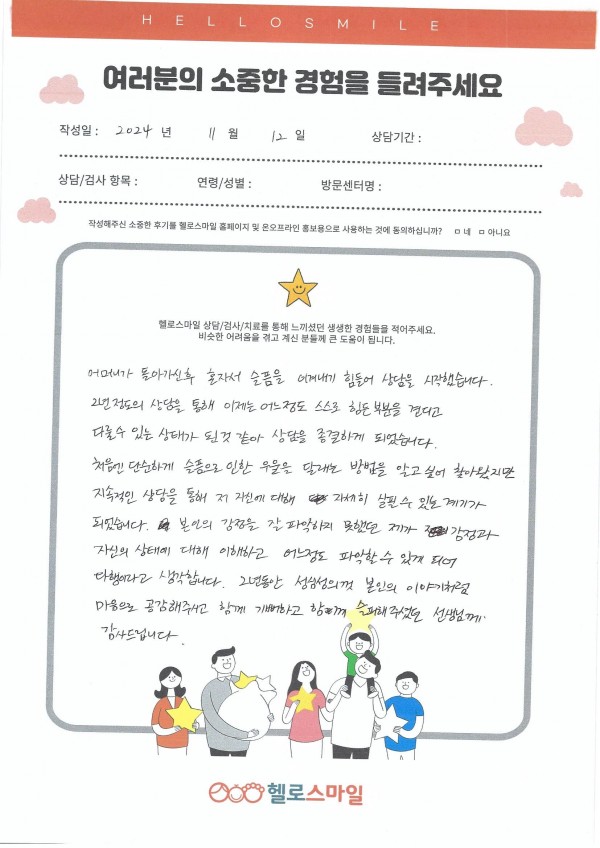 HELLOSMILE
여러분의 소중한 경험을 들려주세요
작성일 : 2024 년 11 월 12 일 상담기간 :
상담/검사 항목 : 연령/성별 : 방문센터명 :
작성해주신 소중한 후기를 헬로스마일 홈페이지 및 온오프라인 홍보용으로 사용하는 것에 동의하십니까? ㅁ 네 ㅁ 아니요
헬로스마일 상담/검사/치료를 통해 느끼셨던 생생한 경험들을 적어주세요.
비슷한 어려움을 겪고 계신 분들께 큰 도움이 됩니다.
어머니가 돌아가신후 혼자서 슬픔을 이겨내기 힘들어 상담을 시작했습니다.
2년정도의 상담을 통해 이제는 어느정도 스스로 힘든 부분을 견디고
다룰수 있는 상태가 된것 같아 상담을 종결하게 되었습니다.
처음엔 단순하게 슬픔으로 인한 우울을 달래는 방법을 알고 싶어 찾아왔지만
지속적인 상담을 통해 저 자신에 대해 자세히 살필 수 있는 계기가
되었습니다. 본인의 감정을 잘 파악하지 못했던 제가 감정과
자신의 상태에 대해 이해하고 어느정도 파악할 수 있게 되어
다행이라고 생각합니다. 2년동안 성심성의껏 본인의 이야기처럼
마음으로 공감해주시고 함께 기뻐하고 함께 슬퍼해주셨던 선생님께
감사드립니다.
헬로스마일